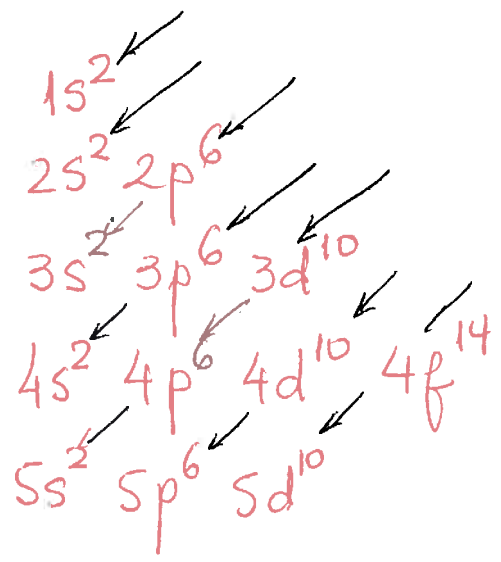 1s²
2s² 2p⁶
3s² 3p⁶ 3d¹⁰
4s² 4p⁶ 4d¹⁰ 4f¹⁴
5s² 5p⁶ 5d¹⁰